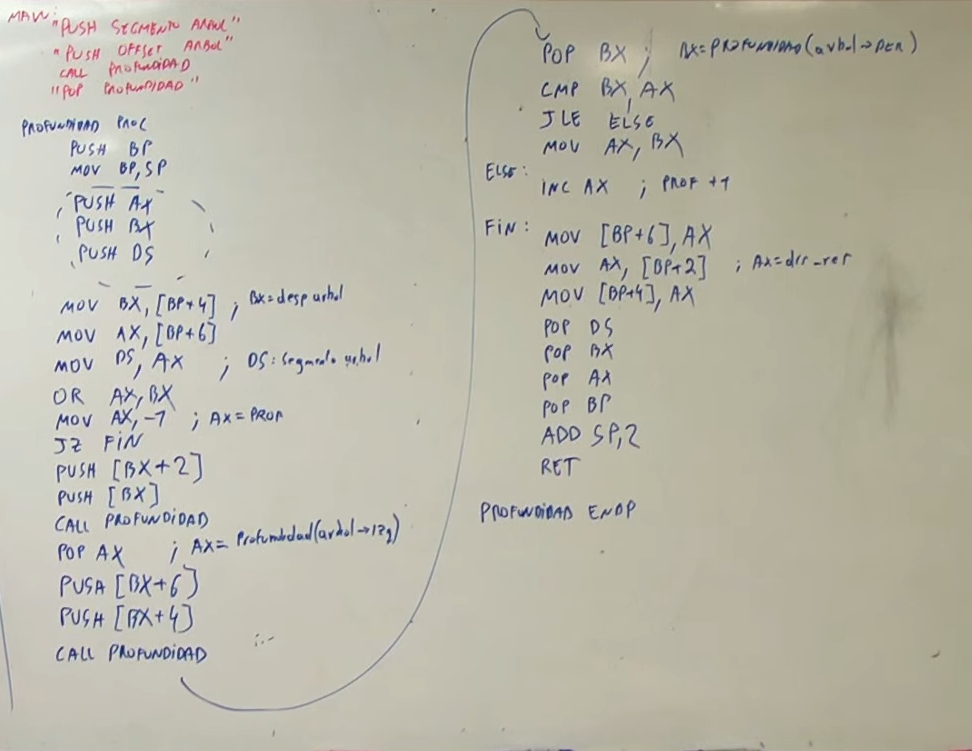 MAIN:
"PUSH SEGMENTO ARBOL"
"PUSH OFFSET ARBOL"
CALL PROFUNDIDAD
"POP PROFUNDIDAD"
PROFUNDIDAD PROC
PUSH BP
MOV BP, SP
PUSH AX
PUSH BX
PUSH DS
MOV BX, [BP+4] ; BX=desp arbol
MOV AX, [BP+6]
MOV DS, AX ; DS: segmento arbol
OR AX, BX
MOV AX, -1 ; AX=PROF
JZ FIN
PUSH [BX+2]
PUSH [BX]
CALL PROFUNDIDAD
POP AX ; AX= Profundidad(arbol→izq)
PUSH [BX+6]
PUSH [BX+4]
CALL PROFUNDIDAD
POP BX ; BX=PROFUNDIDAD(arbol→DER)
CMP BX, AX
JLE ELSE
MOV AX, BX
ELSE:
INC AX ; PROF +1
FIN: MOV [BP+6], AX
MOV AX, [BP+2] ; AX=dir-ret
MOV [BP+4], AX
POP DS
POP BX
POP AX
POP BP
ADD SP, 2
RET
PROFUNDIDAD ENDP